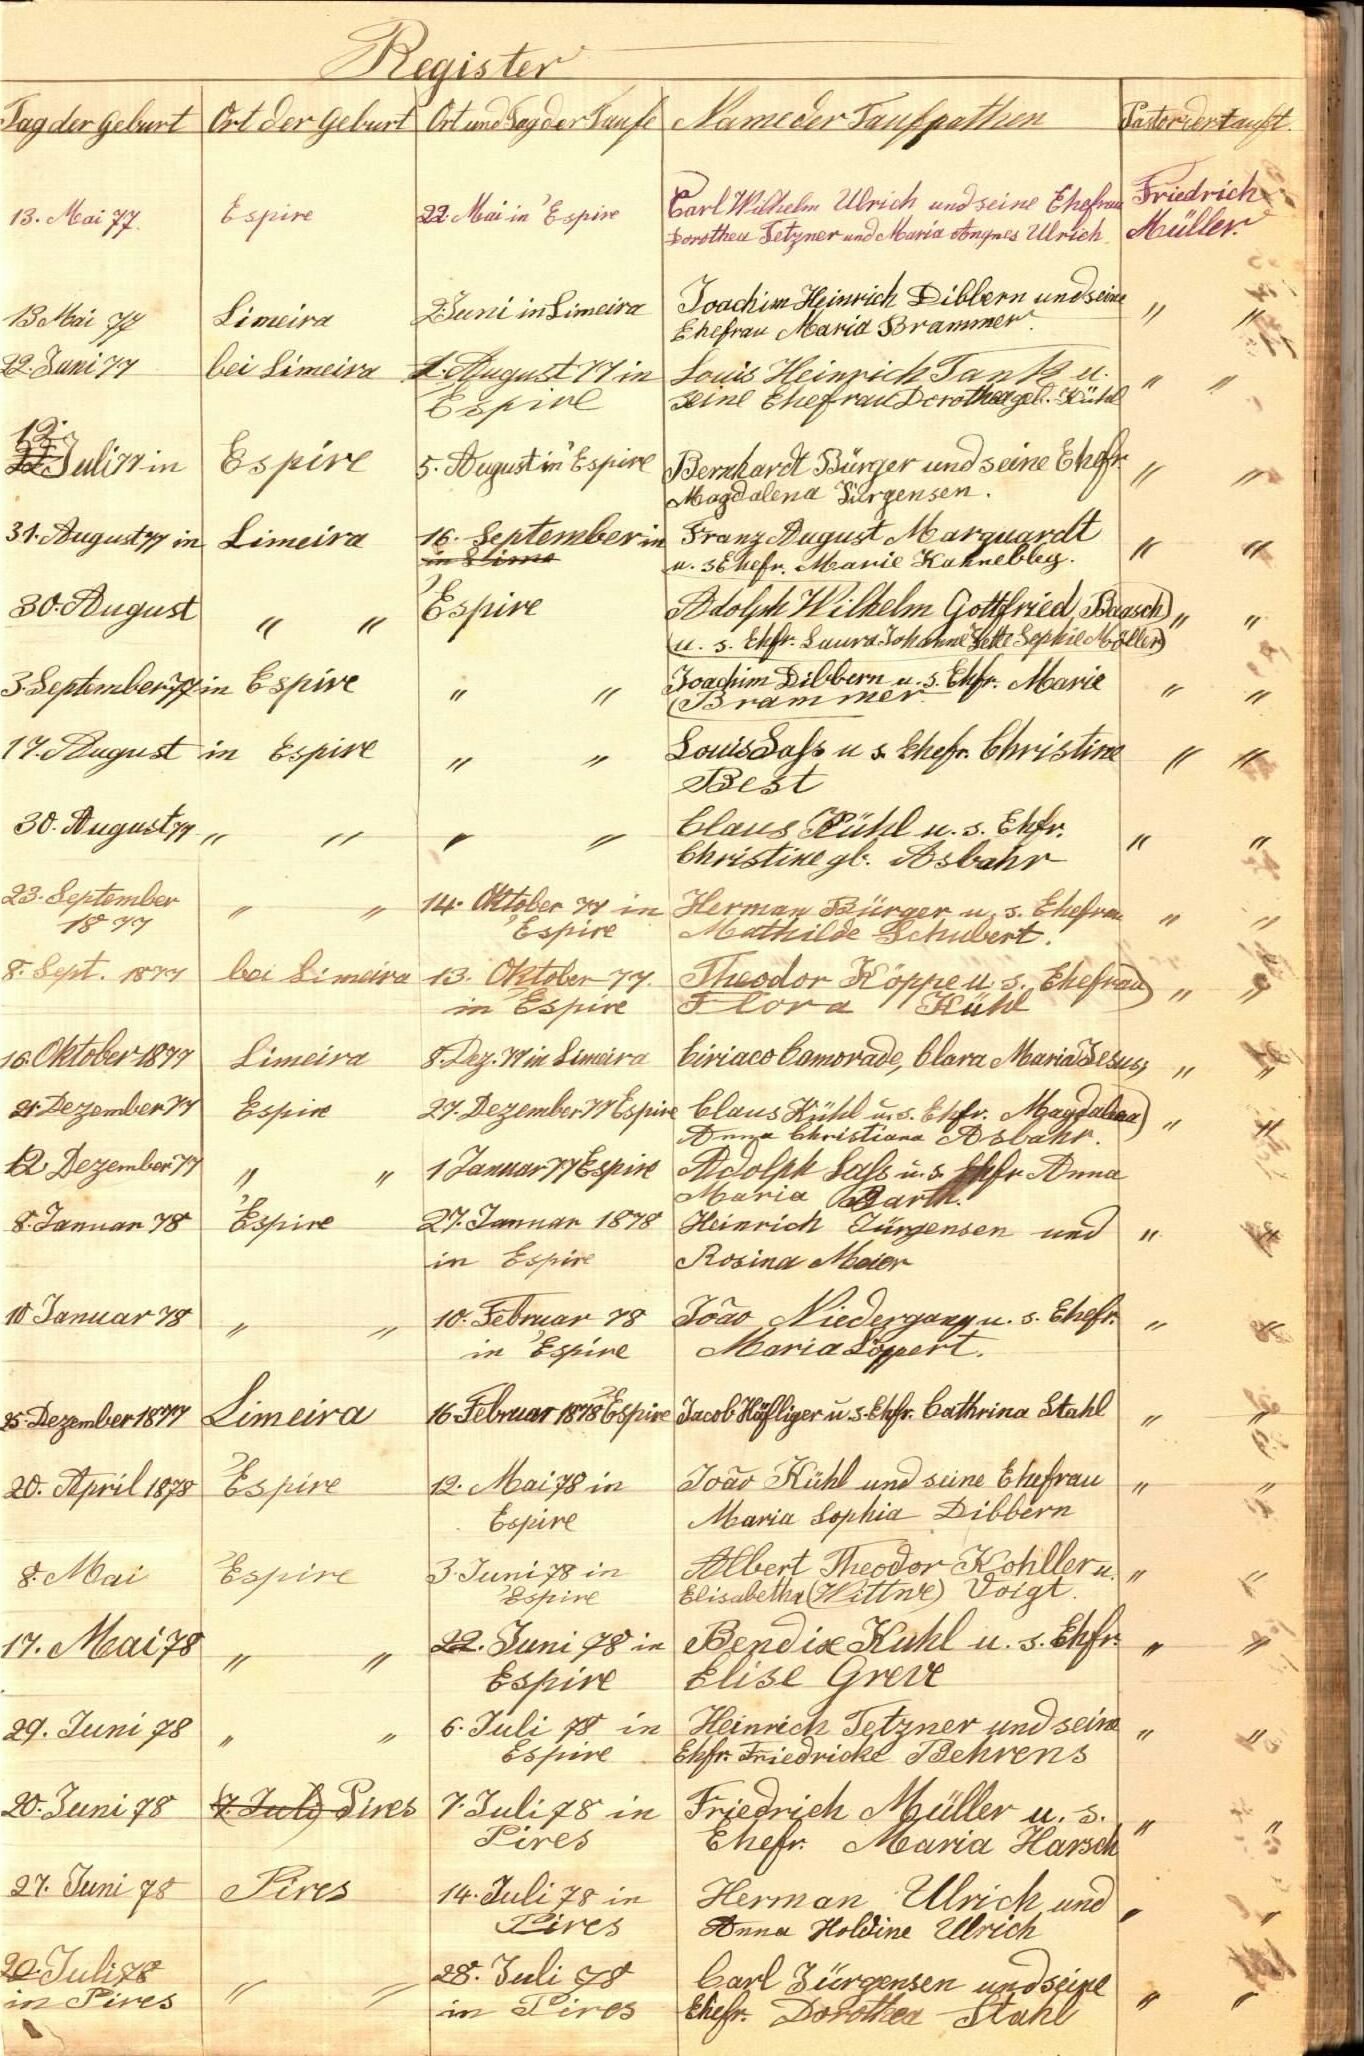 Register
Tag der Geburt Ort der Geburt Ort und Tag der Taufe Name der Taufpathen Pastor der tauft.
13. Mai 77. Espire 22. Mai in Espire Carl Wilhelm Ulrich und seine Ehefrau Friedrich
Dorothea Tetzner und Maria Angnes Ulrich. Müller.
13 Mai 77 Limeira 2 Juni in Limeira Joachim Heinrich Dibbern und seine " "
Ehefrau Maria Brammer.
22. Juni 77 bei Limeira 1. August 77 in Louis Heinrich Tank u. " "
Espire seine Ehefrau Dorothea geb. Kühl
12.
22 Juli 77 in Espire 5. August in Espire Bernhardt Bürger und seine Ehefr. " "
Magdalena Jürgensen.
31. August 77 in Limeira 16. September in Franz August Marquardt " "
in Lime u. s Ehefr. Marie
30. August " " Espire Adolph Wilhelm Gottfried Baasch " "
u. s. Ehfr. Laura Johanne Sophie Möller
3. September 77 in Espire " " Joachim Dibbern u. s. Ehfr. Marie " "
Brammer
17. August in Espire " " Louis Saſs u s. Ehefr. Christine " "
Best
30. August 77 " " " " Claus Kühl u. s. Ehfr. " "
Christine gb. Asbahr
23. September " " 14. Oktober 77 in Herman Bürger u. s. Ehefrau " "
1877 Espire Mathilde Schubert.
8. Sept. 1877 bei Limeira 13. Oktober 77. Theodor Köppe u. s. Ehefrau " "
in Espire Flora Kühl
16. Oktober 1877 Limeira 8. Dez. 77 in Limeira Ciriaco Camorade, Clara Maria Jesus, " "
21. Dezember 77 Espire 27. Dezember 77 Espire Claus Kühl u. s. Ehfr. Magdalena " "
Anna Christiana Asbahr.
12 Dezember 77 " " 1 Januar 77 Espire Adolph Saſs u. s. Ehfr Anna
Maria Barth.
8. Januar 78 Espire 27. Januar 1878 Heinrich Jürgensen und " "
in Espire Rosina Meier
10 Januar 78 " " 10. Februar 78 João Niedergang u. s. Ehefr. " "
in Espire Maria Löppert.
25. Dezember 1877 Limeira 16 Februar 1878 Espire Jacob Häfliger u. s. Ehfr. Cathrina Stahl " "
20. April 1878 Espire 12. Mai 78 in João Kühl und seine Ehefrau " "
Espire Maria Sophia Dibbern
8. Mai Espire 3. Juni 78 in Albert Theodor Kohller u. " "
Espire Elisabetha (Wittwe) Voigt.
17. Mai 78 " " 22. Juni 78 in Bendix Kuhl u. s. Ehfr. " "
Espire Elise Greve
29. Juni 78 " " 6. Juli 78 in Heinrich Tetzner und seine " "
Espire Ehfr. Friedricke Behrens
20. Juni 78 (7. Juli) Pires 7. Juli 78 in Friedrich Müller u. s. " "
Pires Ehefr. Maria Harsch
27. Juni 78 Pires 14. Juli 78 in Herman Ulrich und " "
Pires Anna Holdine Ulrich
20. Juli 78 " " 28. Juli 78 Carl Jürgensen und seine " "
in Pires in Pires Ehefr. Dorothea Stahl